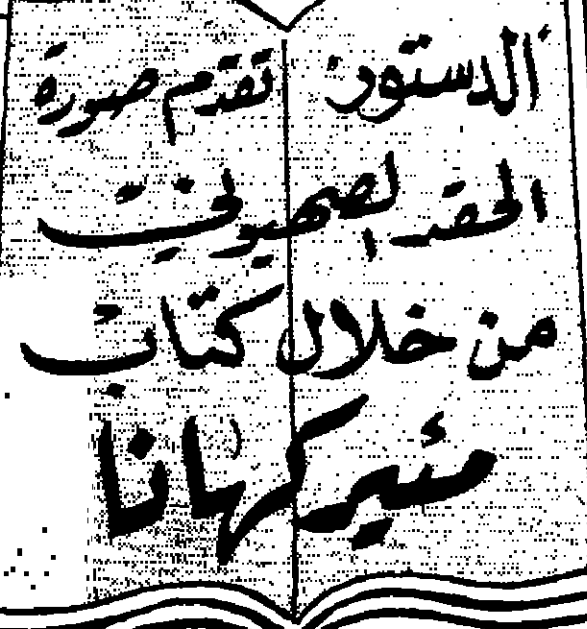 الدستور تقدم صورة
الحقد الصهيوني
من خلال كتاب
مئير كهانا